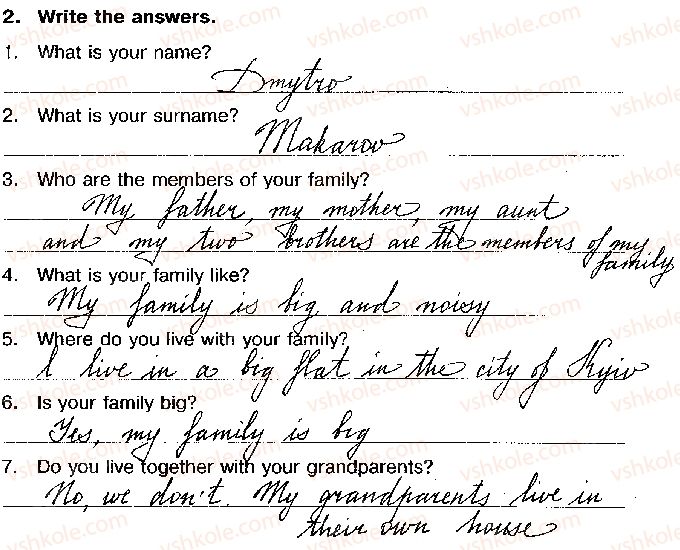 2. Write the answers.
1. What is your name?
Dmytro
2. What is your surname?
Makarov
3. Who are the members of your family?
My father, my mother, my aunt
and my two brothers are the members of my
family
4. What is your family like?
My family is big and noisy
5. Where do you live with your family?
I live in a big flat in the city of Kyiv
6. Is your family big?
Yes, my family is big
7. Do you live together with your grandparents?
No, we don't. My grandparents live in
their own house